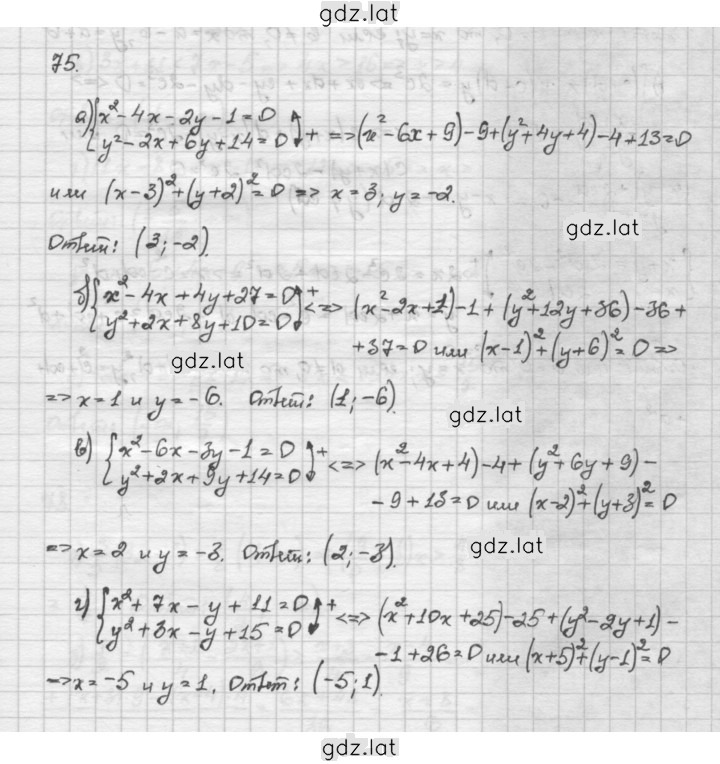 gdz.lat
75.
а) { x² - 4x - 2y - 1 = 0
y² - 2x + 6y + 14 = 0 ↕+ => (x² - 6x + 9) - 9 + (y² + 4y + 4) - 4 + 13 = 0
или (x - 3)² + (y + 2)² = 0 => x = 3; y = -2.
gdz.lat
Ответ: (3; -2).
б) { x² - 4x + 4y + 27 = 0
y² + 2x + 8y + 10 = 0 ↕+ <=> (x² - 2x + 1) - 1 + (y² + 12y + 36) - 36 +
+ 37 = 0 или (x - 1)² + (y + 6)² = 0 =>
gdz.lat
=> x = 1 и y = -6. Ответ: (1; -6).
gdz.lat
в) { x² - 6x - 3y - 1 = 0
y² + 2x + 9y + 14 = 0 ↕+ <=> (x² - 4x + 4) - 4 + (y² + 6y + 9) -
- 9 + 13 = 0 или (x - 2)² + (y + 3)² = 0
=> x = 2 и y = -3. Ответ: (2; -3).
gdz.lat
г) { x² + 7x - y + 11 = 0
y² + 3x - y + 15 = 0 ↕+ <=> (x² + 10x + 25) - 25 + (y² - 2y + 1) -
- 1 + 26 = 0 или (x + 5)² + (y - 1)² = 0
=> x = -5 и y = 1. Ответ: (-5; 1).
gdz.lat